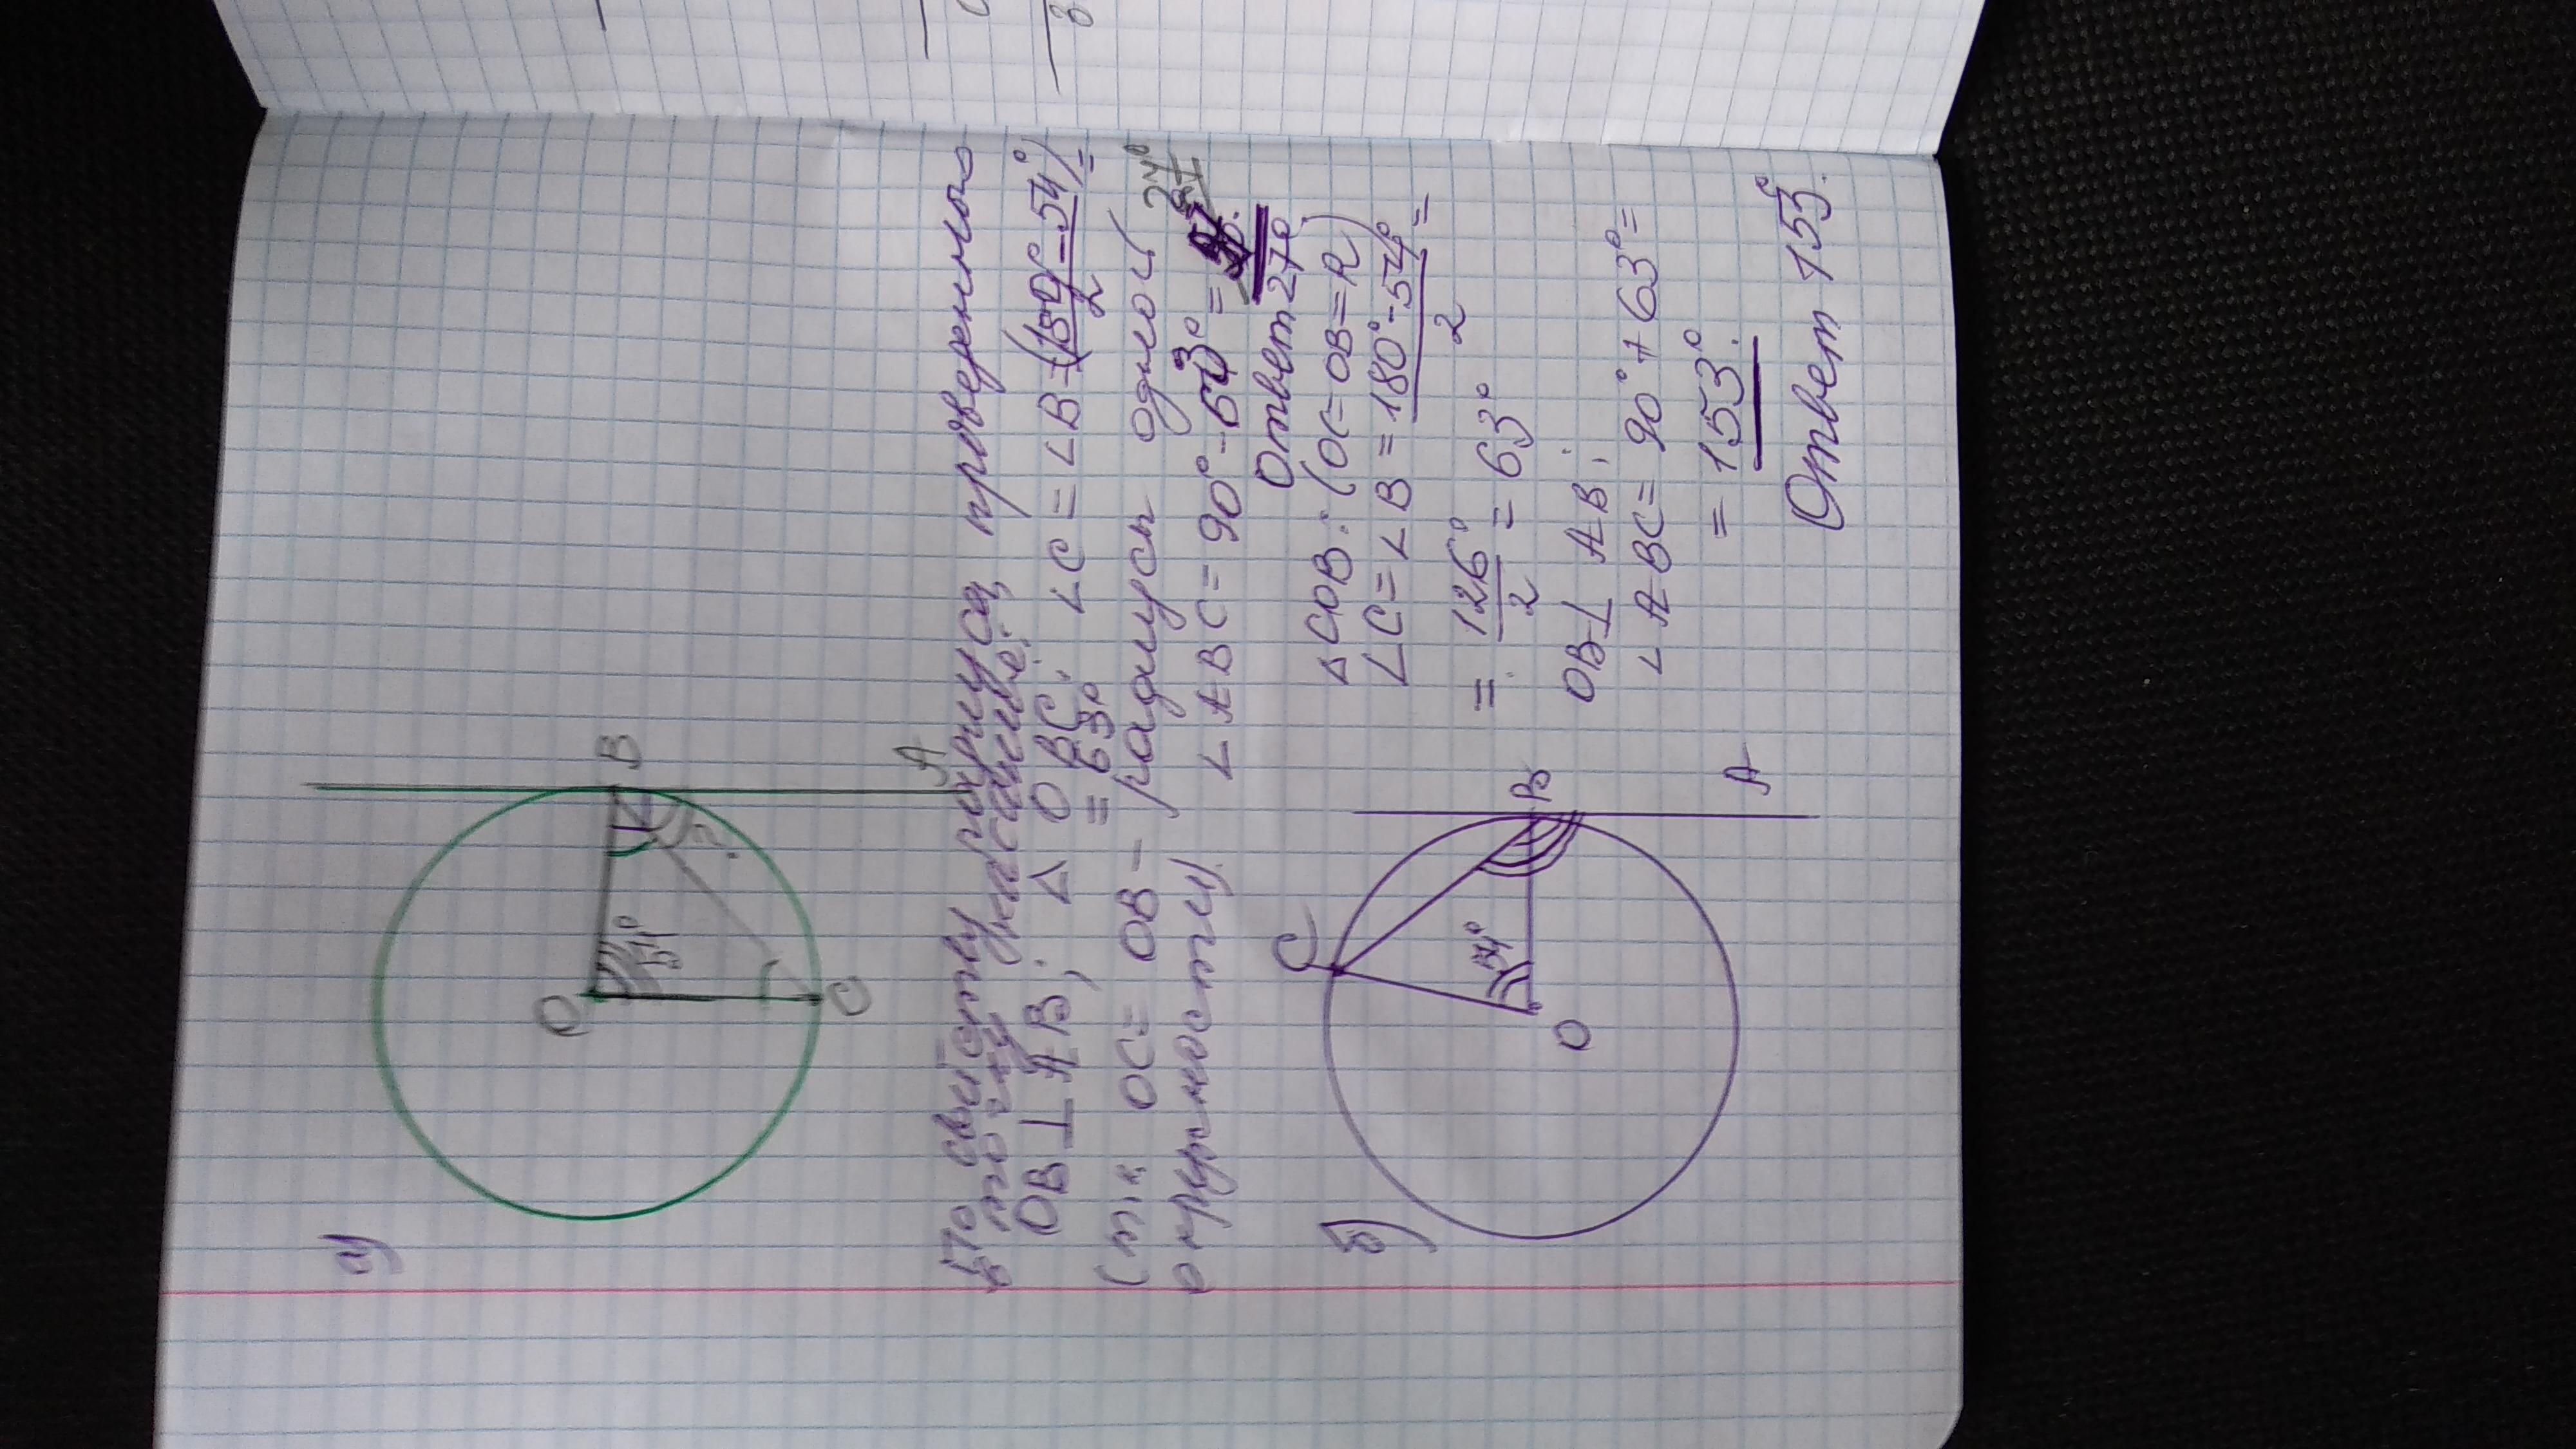 а)
O
B
54°
?
C
A
По свойству радиуса, проведенного
в точку касания:
OB ⊥ AB; △ OBC; ∠C = ∠B = (180° - 54°)
2
= 63°
(т.к. OC = OB - радиусы одной
окружности)
∠ABC = 90° - 63° =
27°
Ответ 27°
б)
C
B
54°
O
A
△COB: (OC = OB = R)
∠C = ∠B = 180° - 54° =
2
= 126° = 63°
2
OB ⊥ AB;
∠ABC = 90° + 63° =
= 153°.
Ответ 153°.